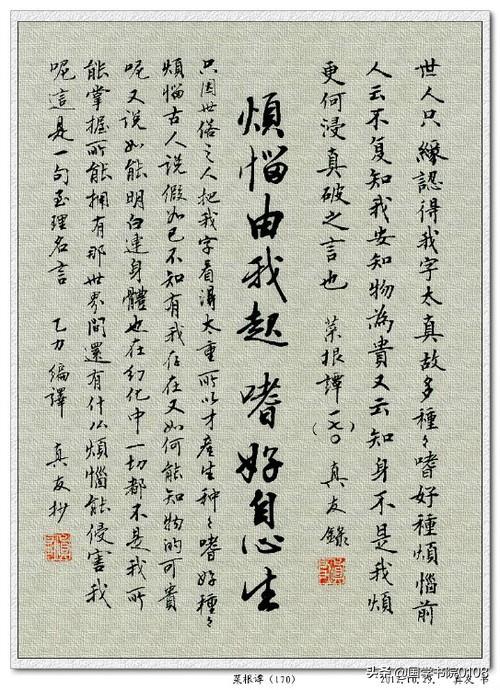 世人只緣認得我字太真故多種々嗜好種煩惱前
人云不复知我安知物為貴又云知身不是我煩
更何浸真破之言也 菜根譚(一七〇) 真友錄
煩惱由我起 嗜好自心生
只因世俗之人把我字看得太重所以才產生种々嗜好種々
煩惱古人說假如已不知有我存在又如何能知物的可貴
呢又说如能明白連身體也在幻化中一切都不是我所
能掌握所能拥有那世界間還有什么煩惱能侵害我
呢這是一句至理名言 乙力編譯 真友抄
菜根谭（170）
真友 书
头条@国学书院0108